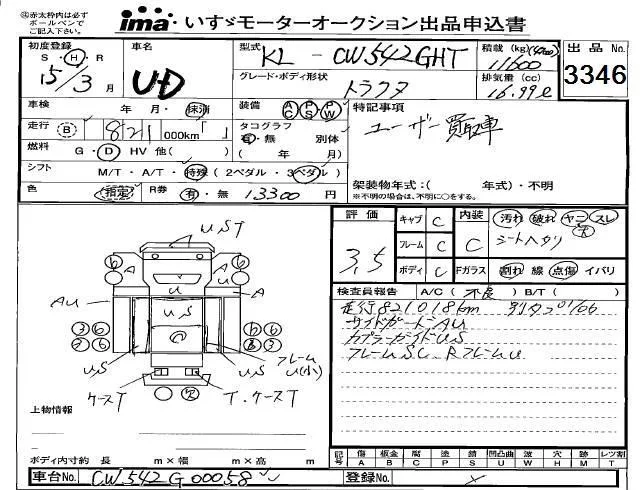 ㊟赤太枠内は必ず
ボールペンで
ご記入下さい。
ima いすゞモーターオークション出品申込書
初度登録 S・H・R 15/3月
車名 UD
型式 KL-CW542GHT
積載 (kg) 11600
グレード・ボディ形状 トラクタ
排気量 (cc) 16.99ℓ
出品No. 3346
車検 年 月・抹消
装備 AC PS PW
特記事項 ユーザー買取車
走行 B 821,000km「 」
タコグラフ 有・無 別体 ( 年 月)
燃料 G・D HV 他( )
シフト M/T・A/T・特殊(2ペダル・3ペダル)
架装物年式:( 年式)・不明
※不明の場合は、不明に○をする。
色 指定 R券 有・無 13300円
評価 3.5
キャブ C 内装 C 汚れ 破れ ヤニ スレ
フレーム C シートヘタリ
ボディ C Fガラス 割れ 線 点傷 イバリ
検査員報告 A/C(不良)B/T( )
走行821018km
サイドガードAU
カプラーガイドUS
フレームSC RフレームU
UST
A A
U
AU A
US
US US フレームU(小)
ケースT T.ケースT
上物情報
ボディ内寸約 長 m×幅 m×高 m
記号 傷A 板金B 腐C 塗P 錆S 凹凸曲U 波W 穴H 跡M レツ割T
車台No. CW542G00058
登録No.